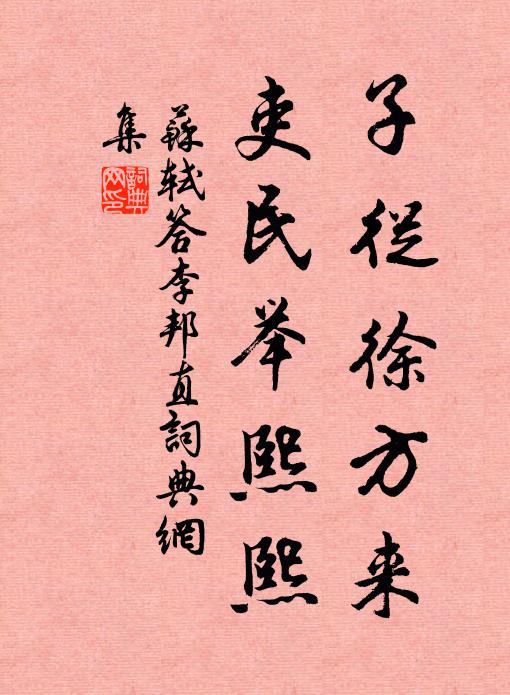 子從徐方来
吏民举熙熙
蘇轼答李邦直詞典網
集
詞典
网印